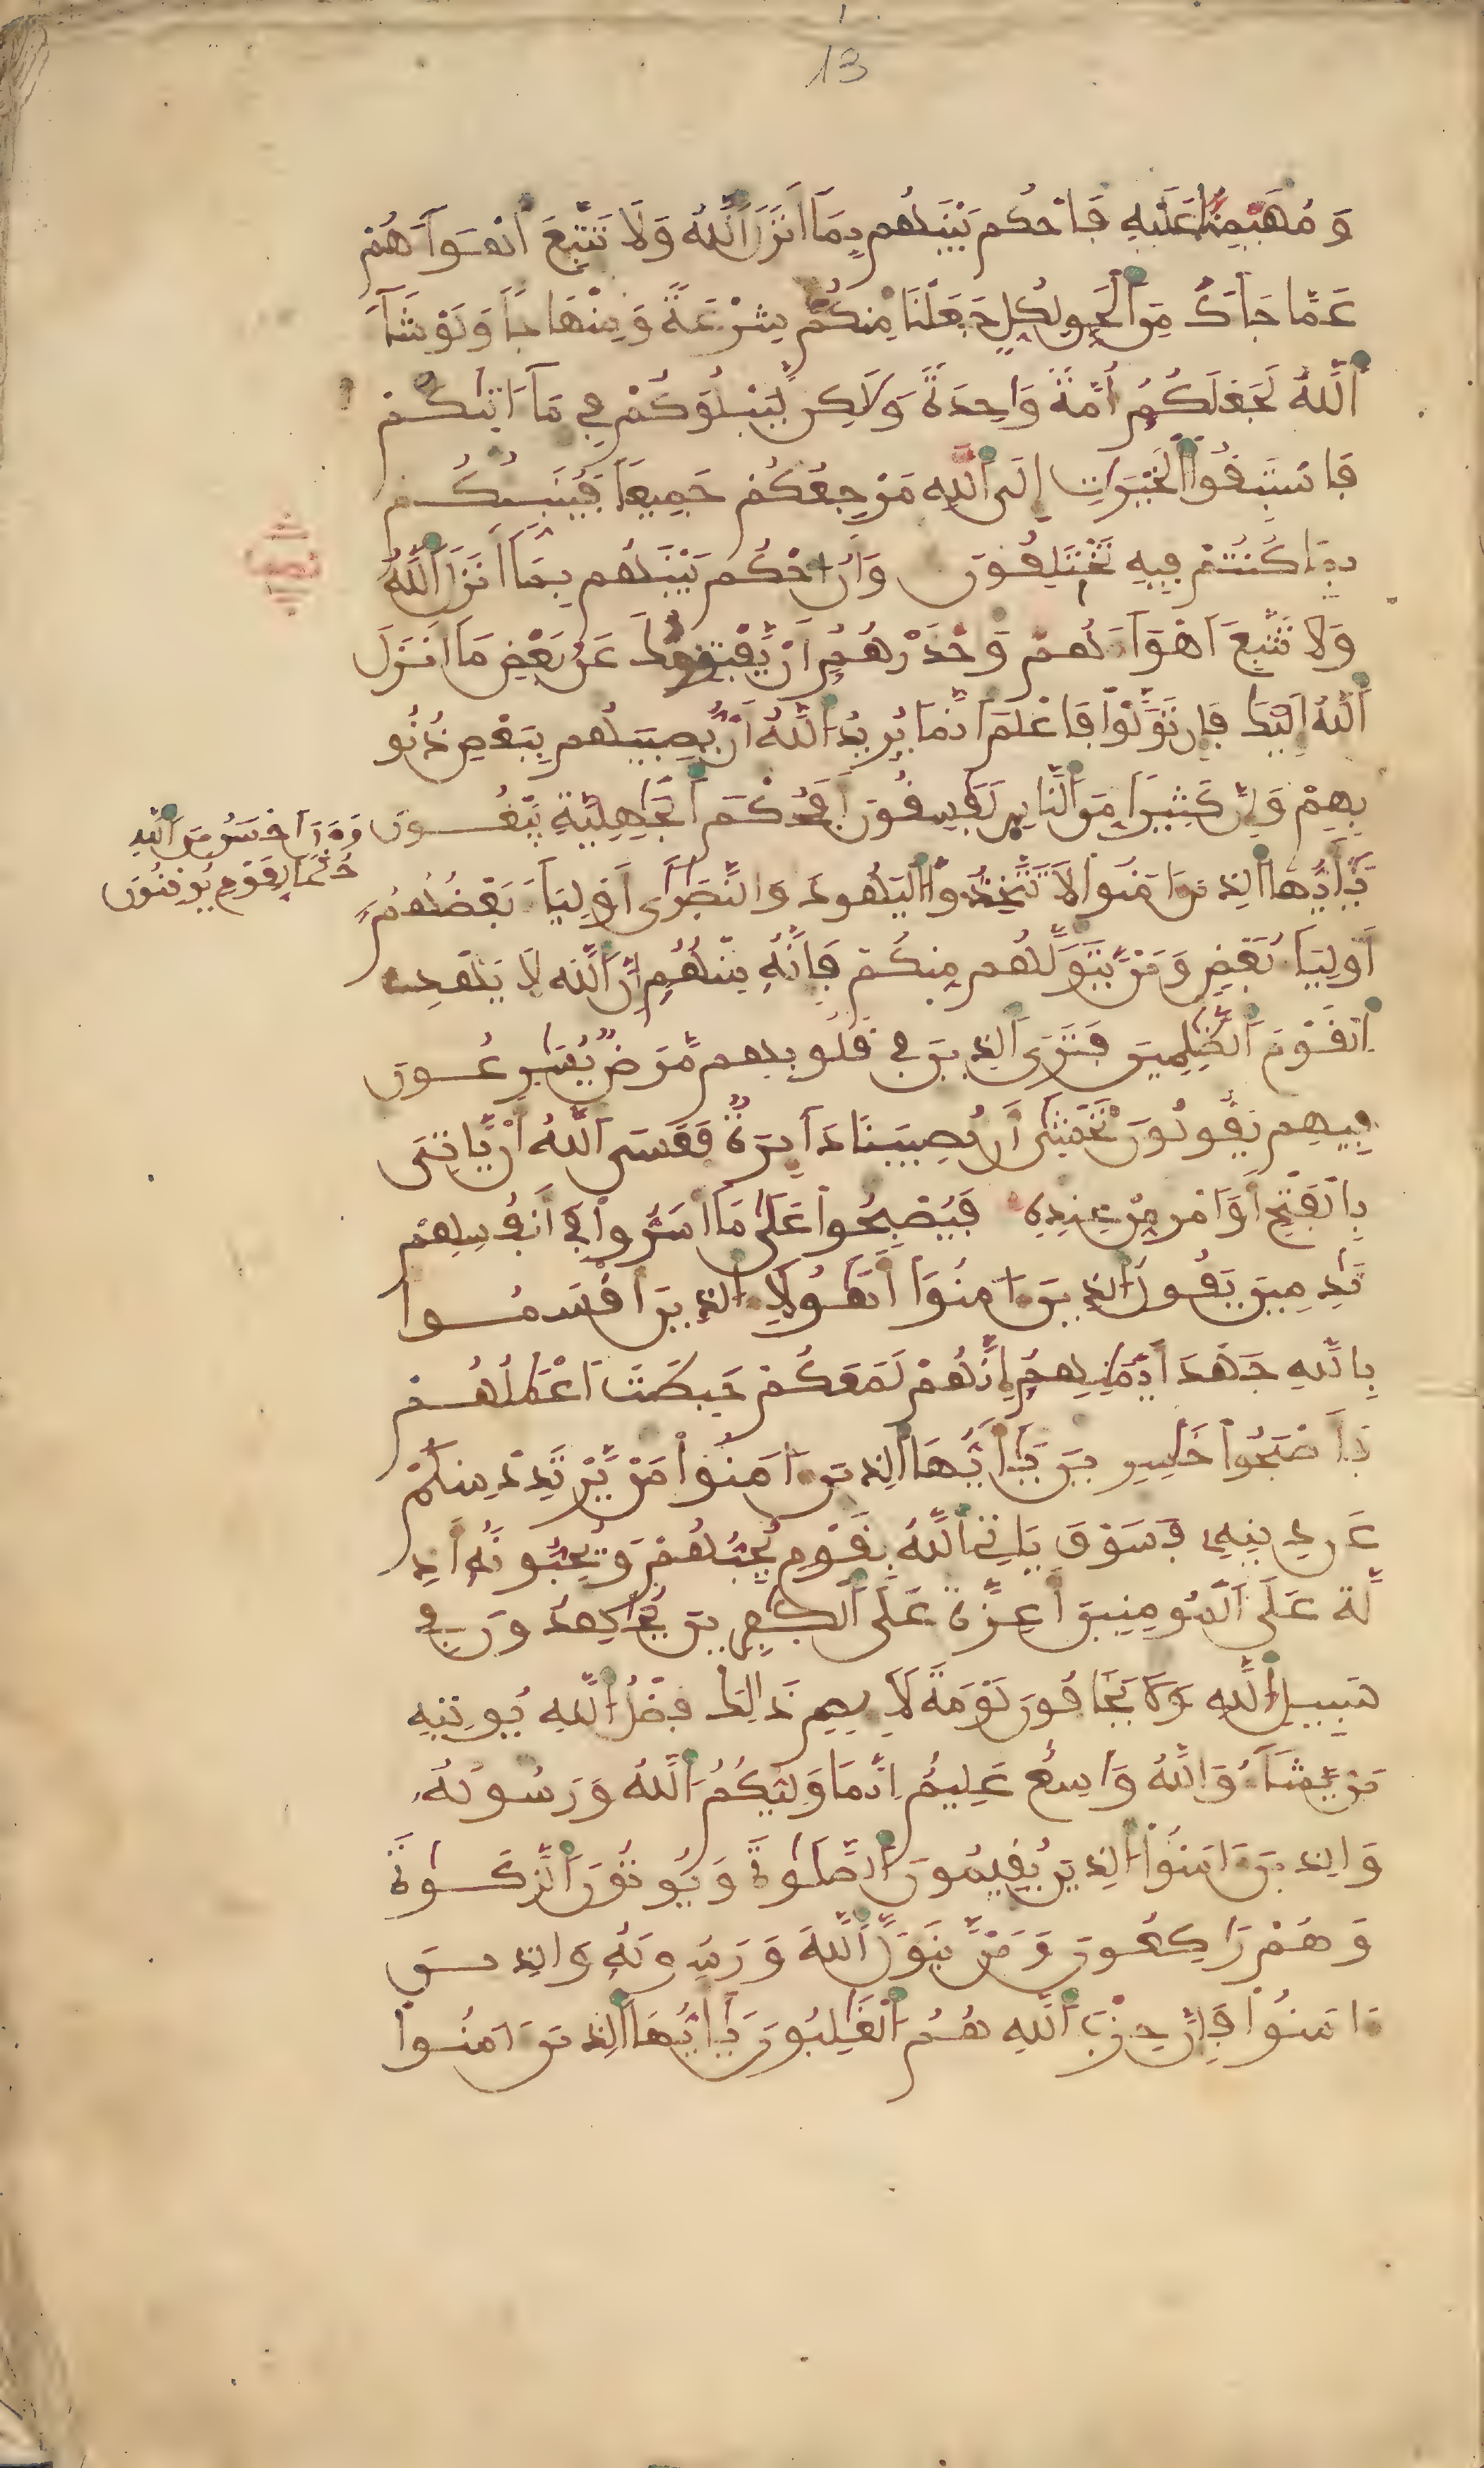 13
وَمُهَيْمِنًا عَلَيْهِ فَاحْكُم بَيْنَهُم بِمَا أَنزَلَ ٱللَّهُ وَلَا تَتَّبِعَ اَهْوَآءَهُمْ
عَمَّا جَآءَكَ مِنَ ٱلْحَقِّ لِكُلٍّ جَعَلْنَا مِنكُمْ شِرْعَةً وَمِنْهَاجًا وَلَوْ شَآءَ
ٱللَّهُ لَجَعَلَكُمُ أُمَّةً وَاحِدَةً وَلَاكِن لِّيَبْلُوَكُمْ فِي مَآ ءَاتَىٰكُمْ
فَاسْتَبِقُوا ٱلْخَيْرَاتِ إِلَى ٱللَّهِ مَرْجِعُكُمْ جَمِيعًا فَيُنَبِّئُكُم
بِمَا كُنتُمْ فِيهِ تَخْتَلِفُونَ وَأَنُ احْكُم بَيْنَهُم بِمَآ أَنزَلَ ٱللَّهُ
وَلَا تَتَّبِعَ اَهْوَآءَهُمْ وَحْذَرْهُمُ أَنْ يَّفْتِنُوكَ عَنۢ بَعْضِ مَا أَنزَلَ
ٱللَّهُ إِلَيْكَ فَإِن تَوَلَّوْا فَاعْلَمَ اَنَّمَا يُرِيدُ ٱللَّهُ أَنْ يُّصِيبَهُم بِبَعْضِ ذُنُو
بِهِمْ وَإِنَّ كَثِيرًا مِّنَ ٱلنَّاسِ لَفَٰسِقُونَ أَفَحُكْمَ ٱلْجَٰهِلِيَّةِ يَبْغُونَ
وَمَنَ اَحْسَنُ مِنَ ٱللَّهِ
حُكْمًا لِّقَوْمٍ يُوقِنُونَ
يَٰٓأَيُّهَا ٱلذِينَ ءَامَنُوا لَا تَتَّخِذُوا ٱلْيَهُودَ وَالنَّصَٰرَىٰ أَوْلِيَآءَ بَعْضُهُمُ
أَوْلِيَآءُ بَعْضٍ وَمَنْ يَّتَوَلَّهُم مِّنكُمْ فَإِنَّهُ مِنْهُمُ إِنَّ ٱللَّهَ لَا يَهْدِي
ٱلْقَوْمَ ٱلظَّٰلِمِينَ فَتَرَى ٱلذِينَ فِي قُلُوبِهِم مَّرَضٌ يُّسَٰرِعُونَ
فِيهِمْ يَقُولُونَ نَخْشَىٰ أَن تُصِيبَنَا دَآئِرَةٌ فَعَسَى ٱللَّهُ أَنْ يَّاتِيَ
بِالْفَتْحِ أَوَ اَمْرٍ مِّنْ عِندِهِ فَيُصْبِحُوا عَلَىٰ مَا أَسَرُّوا فِي أَنفُسِهِمْ
نَٰدِمِينَ يَقُولُ ٱلذِينَ ءَامَنُوٓا أَهَٰٓؤُلَآءِ ٱلذِينَ أَقْسَمُوا
بِاللَّهِ جَهْدَ أَيْمَٰنِهِمُ إِنَّهُمْ لَمَعَكُمْ حَبِطَتَ اَعْمَٰلُهُمْ
فَأَصْبَحُوا خَٰسِرِينَ يَٰٓأَيُّهَا ٱلذِينَ ءَامَنُوا مَنْ يَّرْتَدِدْ مِنكُمْ
عَن دِينِهِ فَسَوْفَ يَاتِي ٱللَّهُ بِقَوْمٍ يُحِبُّهُمْ وَيُحِبُّونَهُ أَذِ
لَّةٍ عَلَى ٱلْمُومِنِينَ أَعِزَّةٍ عَلَى ٱلْكَٰفِرِينَ يُجَٰهِدُونَ فِي
سَبِيلِ ٱللَّهِ وَلَا يَخَافُونَ لَوْمَةَ لَآئِمٍ ذَٰلِكَ فَضْلُ ٱللَّهِ يُوتِيهِ
مَنْ يَّشَآءُ وَاللَّهُ وَاسِعٌ عَلِيمٌ إِنَّمَا وَلِيُّكُمُ ٱللَّهُ وَرَسُولُهُ
وَالذِينَ ءَامَنُوا ٱلذِينَ يُقِيمُونَ ٱلصَّلَوٰةَ وَيُوتُونَ ٱلزَّكَوٰةَ
وَهُمْ رَاكِعُونَ وَمَنْ يَّتَوَلَّ ٱللَّهَ وَرَسُولَهُ وَالذِينَ
ءَامَنُوا فَإِنَّ حِزْبَ ٱللَّهِ هُمُ ٱلْغَٰلِبُونَ يَٰٓأَيُّهَا ٱلذِينَ ءَامَنُوا